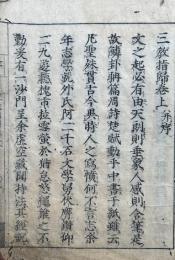 三教指歸卷上 并序
文之起必有由天朗則垂象人感則含筆是
故鱗卦聃篇周詩楚賦動乎中書于紙雖云
凡聖殊貫古今異時人之寫憤何不言志余
年志學就外氏阿二千石文學舅伏膺鑽仰
二九遊聽槐市拉雪螢於猶怠怒繩錐之不
勤爰有一沙門呈余虛空藏聞持法其經說